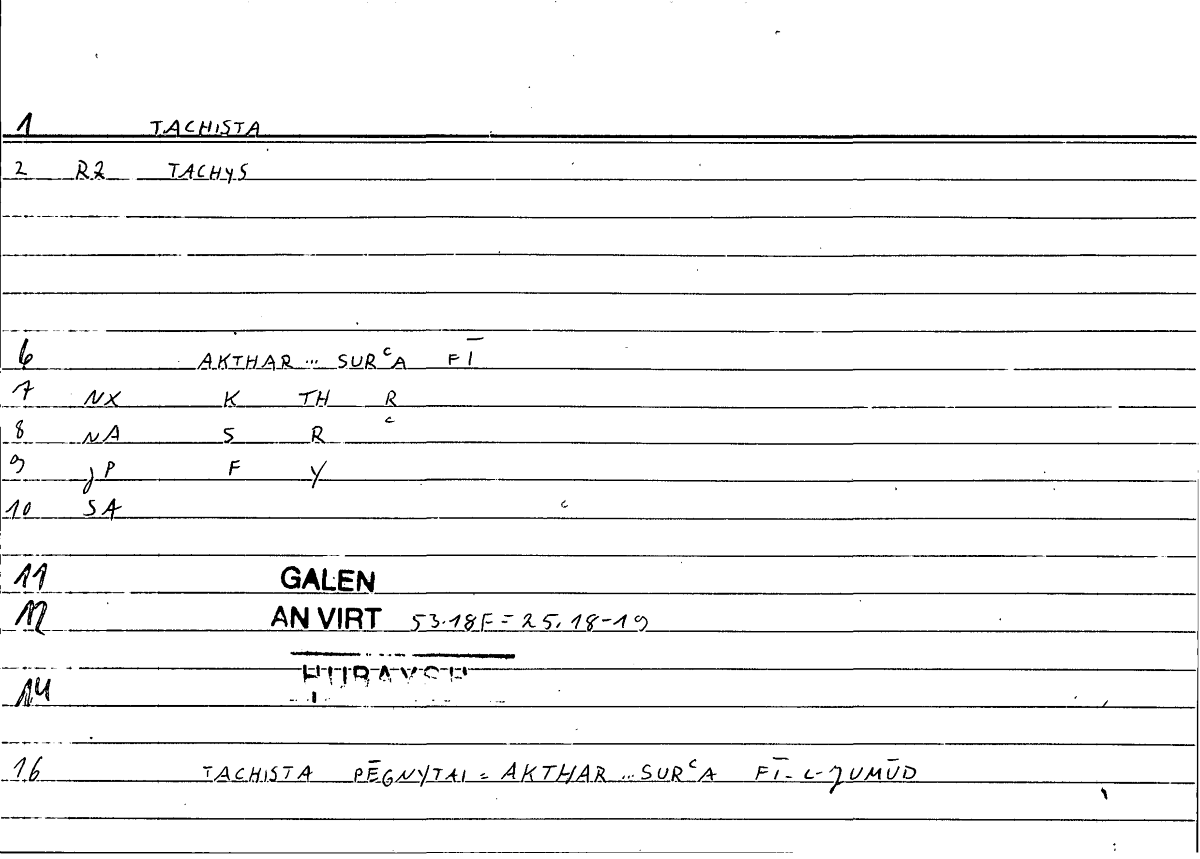 1 TACHISTA
2 RZ TACHYS
6 AKTHAR ... SURᶜA FĪ
7 NX K TH R
8 NA S R ᶜ
9 JP F Y
10 SA
11 GALEN
12 AN VIRT 53.18F = 25.18-19
14
16 TACHISTA PĒGNYTAI = AKTHAR ... SURᶜA FĪ-L-JUMŪD